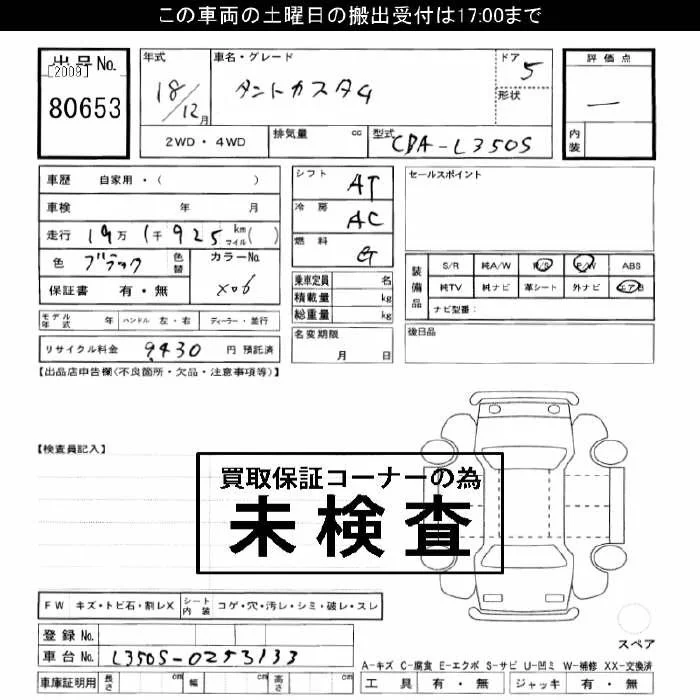 この車両の土曜日の搬出受付は17:00まで
出品No.
[2009]
80653
年式
18/12月
車名・グレード
タントカスタム
ドア
5
形状
評価点
—
内装
2WD・4WD
排気量 cc
型式 CBA-L350S
車歴 自家用・( )
車検 年 月
走行 19万1千925 km マイル( )
色 ブラック 色替 カラーNo. X06
保証書 有・無
シフト AT
冷房 AC
燃料 G
乗車定員 名
積載量 kg
総重量 kg
セールスポイント
装備品
S/R 純A/W P/S P/W ABS
純TV 純ナビ 革シート 外ナビ エアB
ナビ型番:
モデル年式 年 ハンドル 左・右 ディーラー・並行
名変期限
月 日
後日品
リサイクル料金 9430 円 預託済
【出品店申告欄(不良箇所・欠品・注意事項等)】
【検査員記入】
買取保証コーナーの為
未検査
FW キズ・トビ石・割レX シート内装 コゲ・穴・汚レ・シミ・破レ・スレ
登録No.
車台No. L350S-0253133
車庫証明用 長さ cm 幅 cm 高さ cm
スペア
A-キズ C-腐食 E-エクボ S-サビ U-凹ミ W-補修 XX-交換済
工具 有・無 ジャッキ 有・無